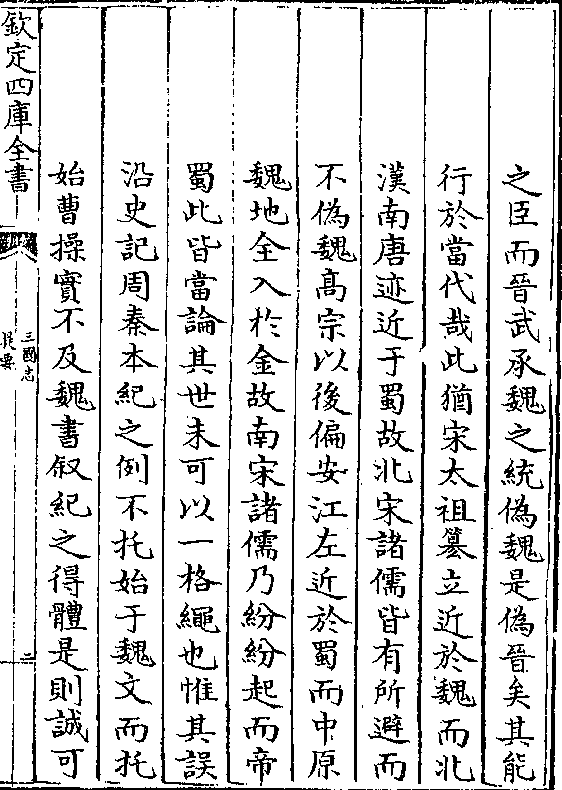 之臣而晉武承魏之統偽魏是偽晉矣其能
行於當代哉此猶宋太祖簒立近於魏而北
漢南唐迹近于蜀故北宋諸儒皆有所避而
不偽魏髙宗以後偏安江左近於蜀而中原
魏地全入於金故南宋諸儒乃紛紛起而帝
蜀此皆當論其世未可以一格繩也惟其誤
沿史記周秦本紀之例不托始于魏文而托
始曹操實不及魏書叙紀之得體是則誠可
欽定四庫全書
三國志
提要
二